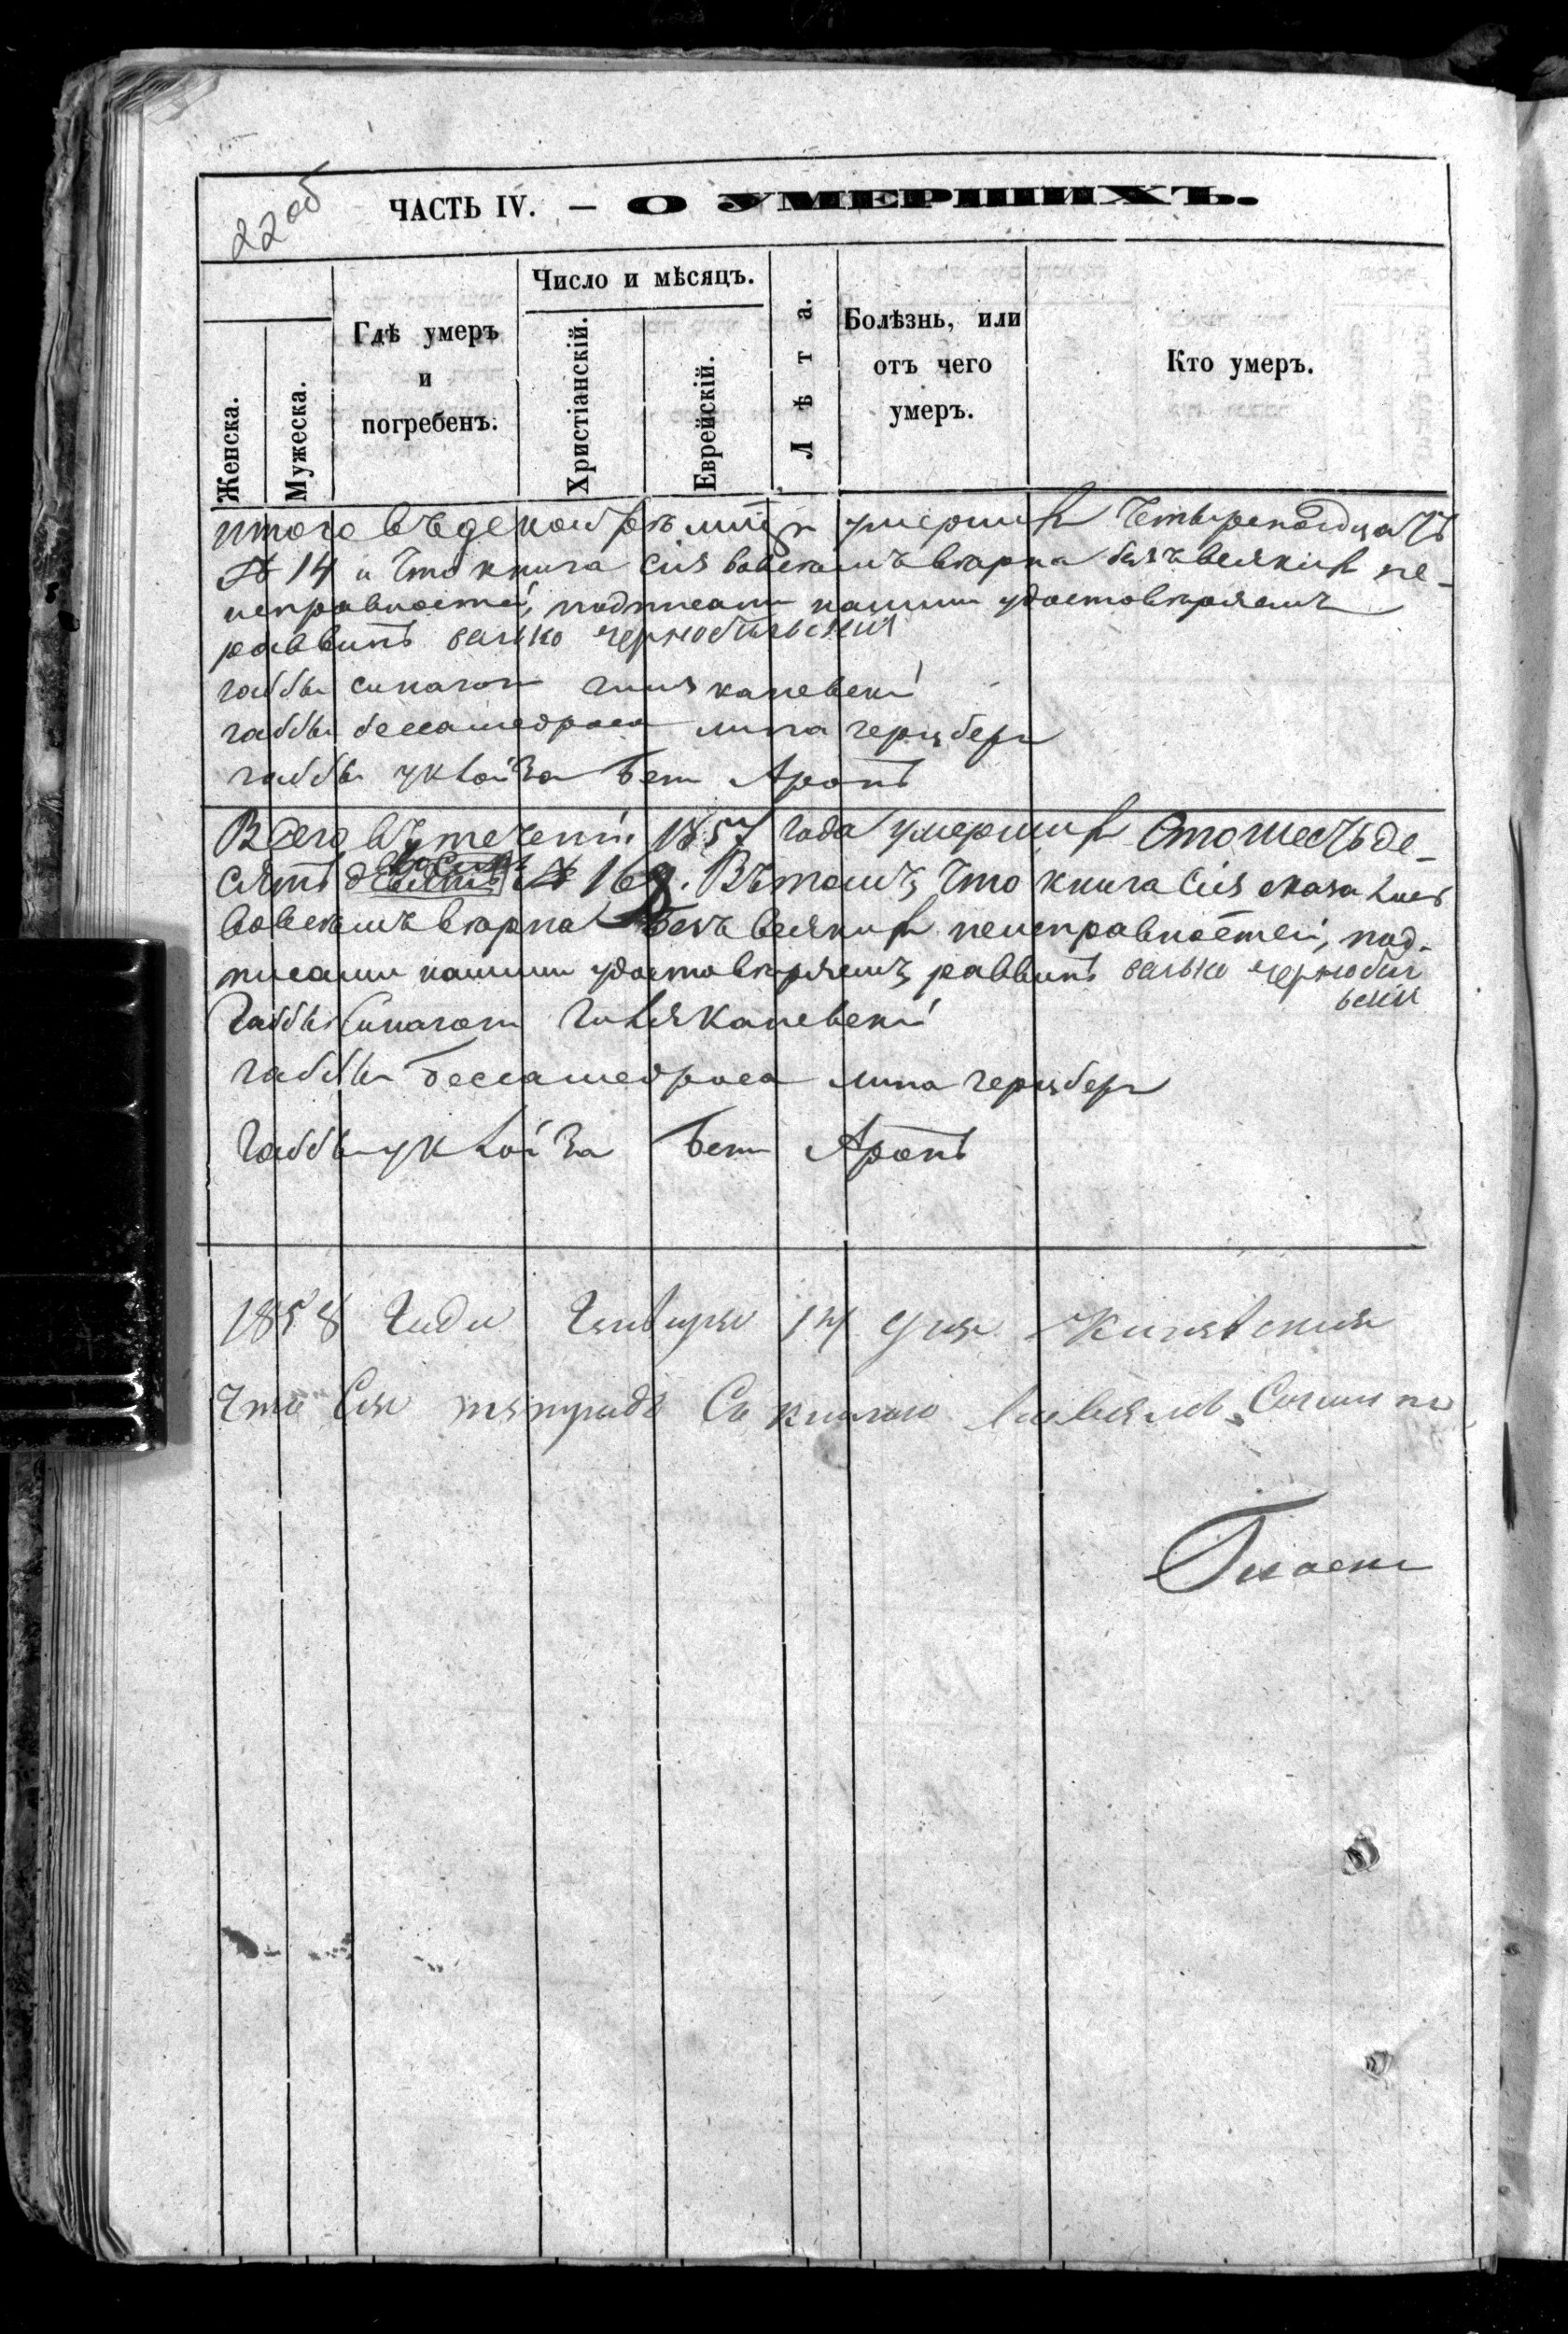 22 об
ЧАСТЬ IV. — О УМЕРШИХЪ.
Женска.
Мужеска.
Гдѣ умеръ
и
погребенъ.
Число и мѣсяцъ.
Христіанскій.
Еврейскій.
Лѣта.
Болѣзнь, или
отъ чего
умеръ.
Кто умеръ.
итого въ декабрѣ умершихъ Четыренадцать
№ 14 и Что книга Сія вовсемъ вѣрна безъ всякихъ не-
исправностей, подписами нашими удостовѣряемъ
раввинъ валько чернобильский
габбы синагоги каневскі
габбы бессамедроса липа герцберг
габбы у клойза Бени Аронъ
Всего въ теченіи 1857 Года умершихъ Сто шесть де-
сятъ восемь № 168. Въ томъ, Что книга Сія
вовсемъ вѣрна Безъ всякихъ неисправностей, под-
писами нашими удостовѣряемъ, раввинъ валько чернобил
ьский
Габбы Синагоги каневскі
Габбы бессамедроса липа герцберг
Габбы у клойза Бени Аронъ
1858 Года Генваря 14 дня
Что Сію тетрадь Съ книгою